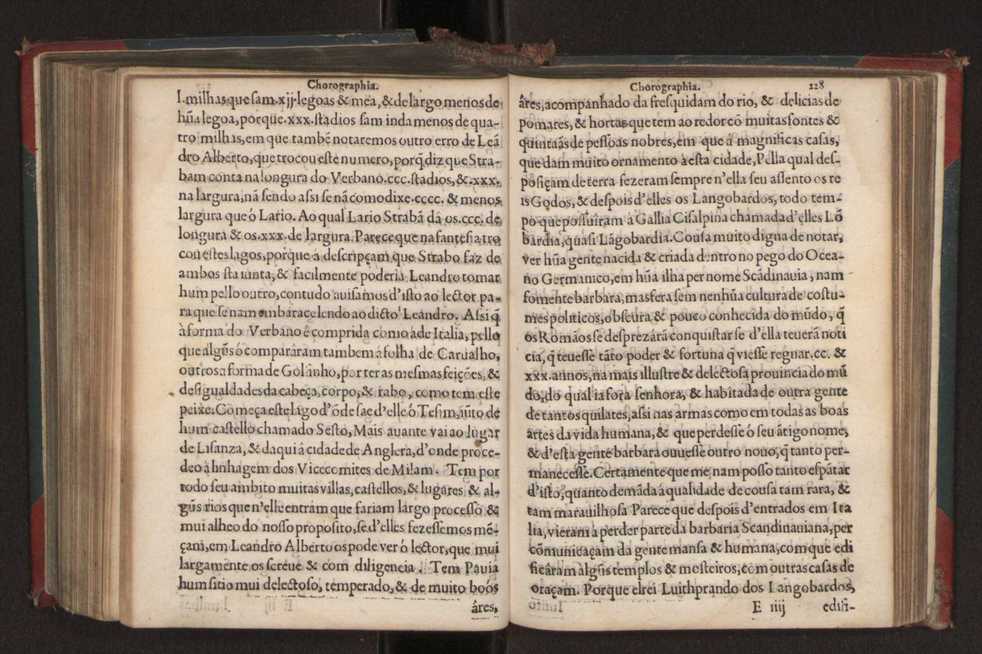 Chorographia.
l. milhas que sam .xij. legoas & mea, & de largo menos de
hũa legoa, porque .xxx. stadios sam inda menos de qua-
tro milhas, em que tambẽ notaremos outro erro de Leã
dro Alberto, que trocou este numero, porq̃ diz que Stra-
bam conta na longura do Verbano .ccc. stadios, & .xxx.
na largura, nã sendo assi se nã como dixe .cccc. & menos
largura que ó Lario. Ao qual Lario Strabã dá os .ccc. de
longura & os .xxx. de largura. Parece que na fantesia tro
cou estes lagos, porque a descripçam que Strabo faz de
ambos sta iunta, & facilmente poderia Leandro tomar
hum pello outro, contudo auisamos d'isto ao lector pa-
ra que se nam embarace lendo ao dicto Leandro. Assi q̃
à forma do Verbano é comprida como à de Italia, pello
que algũs ó compararam tambem à folha de Caruaiho,
outros a forma de Golfinho, por ter as mesmas feições, &
desigualdades da cabeça, corpo, & rabo, como tem este
peixe. Começa este lago d'õde sae d'elle ó Tesim, iũto de
hum castello chamado Sesto, Mais auante vai ao lugar
de Lisanza, & daqui á cidade de Anglera, d'onde proce-
deo à linhagem dos Vicecomites de Milam. Tem por
todo seu ambito muitas villas, castellos, & lugares & al-
gũs rios que n'elle entram que fariam largo processo &
mui alheo do nosso proposito, se d'elles fezessemos mẽ-
çam, em Leandro Alberto os pode ver ó lector, que mui
largamente os screue & com diligencia. Tem Pauia
hum sitio mui delectoso, temperado, & de muito boõs
âres,
Chorographia. 228
âres, acompanhado da fresquidam do rio, & delicias de
pomares, & hortas que tem ao redor cõ muitas fontes &
quintaãs de pessoas nobres, em que á magnificas casas,
que dam muito ornamento à esta cidade, Pella qual des-
posiçam de terra fezeram sempre n'ella seu assento os re
is Godos, & despois d'elles os Langobardos, todo tem-
po que possuiram à Gallia Cisalpina chamada d'elles Lõ
bardia, quasi Lãgobardia. Cousa muito digna de notar,
ver hũa gente nacida & criada dentro no pego do Ocea-
no Germanico, em hũa ilha per nome Scãdinauia, nam
somente barbara, mas fera sem nenhũa cultura de costu-
mes politicos, obscura & pouco conhecida do mũdo, q̃
os Romãos se desprezárã conquistar se d'ella teuerã noti
cia, q̃ teuesse tãto poder & fortuna q̃ viesse regnar .cc. &
xxx. annos, na mais illustre & delectosa prouincia do mũ
do, do qual ia fora senhora, & habitada de outra gente
de tantos quilates, assi nas armas como em todas as boas
ârtes da vida humana, & que perdesse ó seu ãtigo nome,
& d'esta gente barbara ouuesse outro nouo, q̃ tanto per-
manecesse. Certamente que me nam posso tanto espãtar
d'isto, quanto demãda à qualidade de cousa tam rara, &
tam marauilhosa Parece que despois d'entrados em Ita
lia, vieram à perder parte da barbaria Scandinauiana, per
cõmunicaçam da gente mansa & humana, com que edi
ficâram àlgũs templos & mosteiros, com outras casas de
oraçam. Porque elrei Luithprando dos Langobardos,
E iiij edifi-